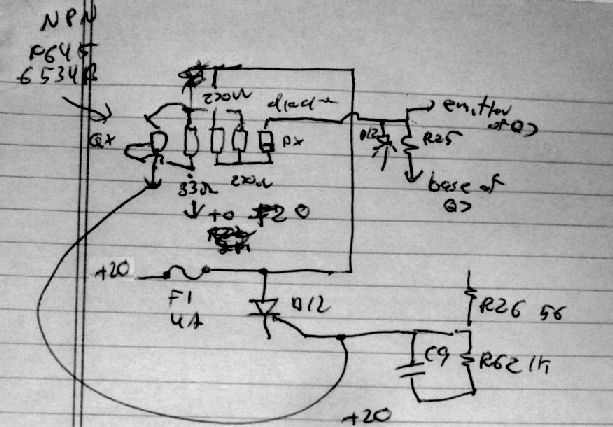 NPN
6534B
220Ω
diode
emitter
of Q7
QX
DX
D12
R25
33Ω
220Ω
base of
Q7
to F20
+20
F1
4A
D12
R26 56
C9
R62 1K
+20